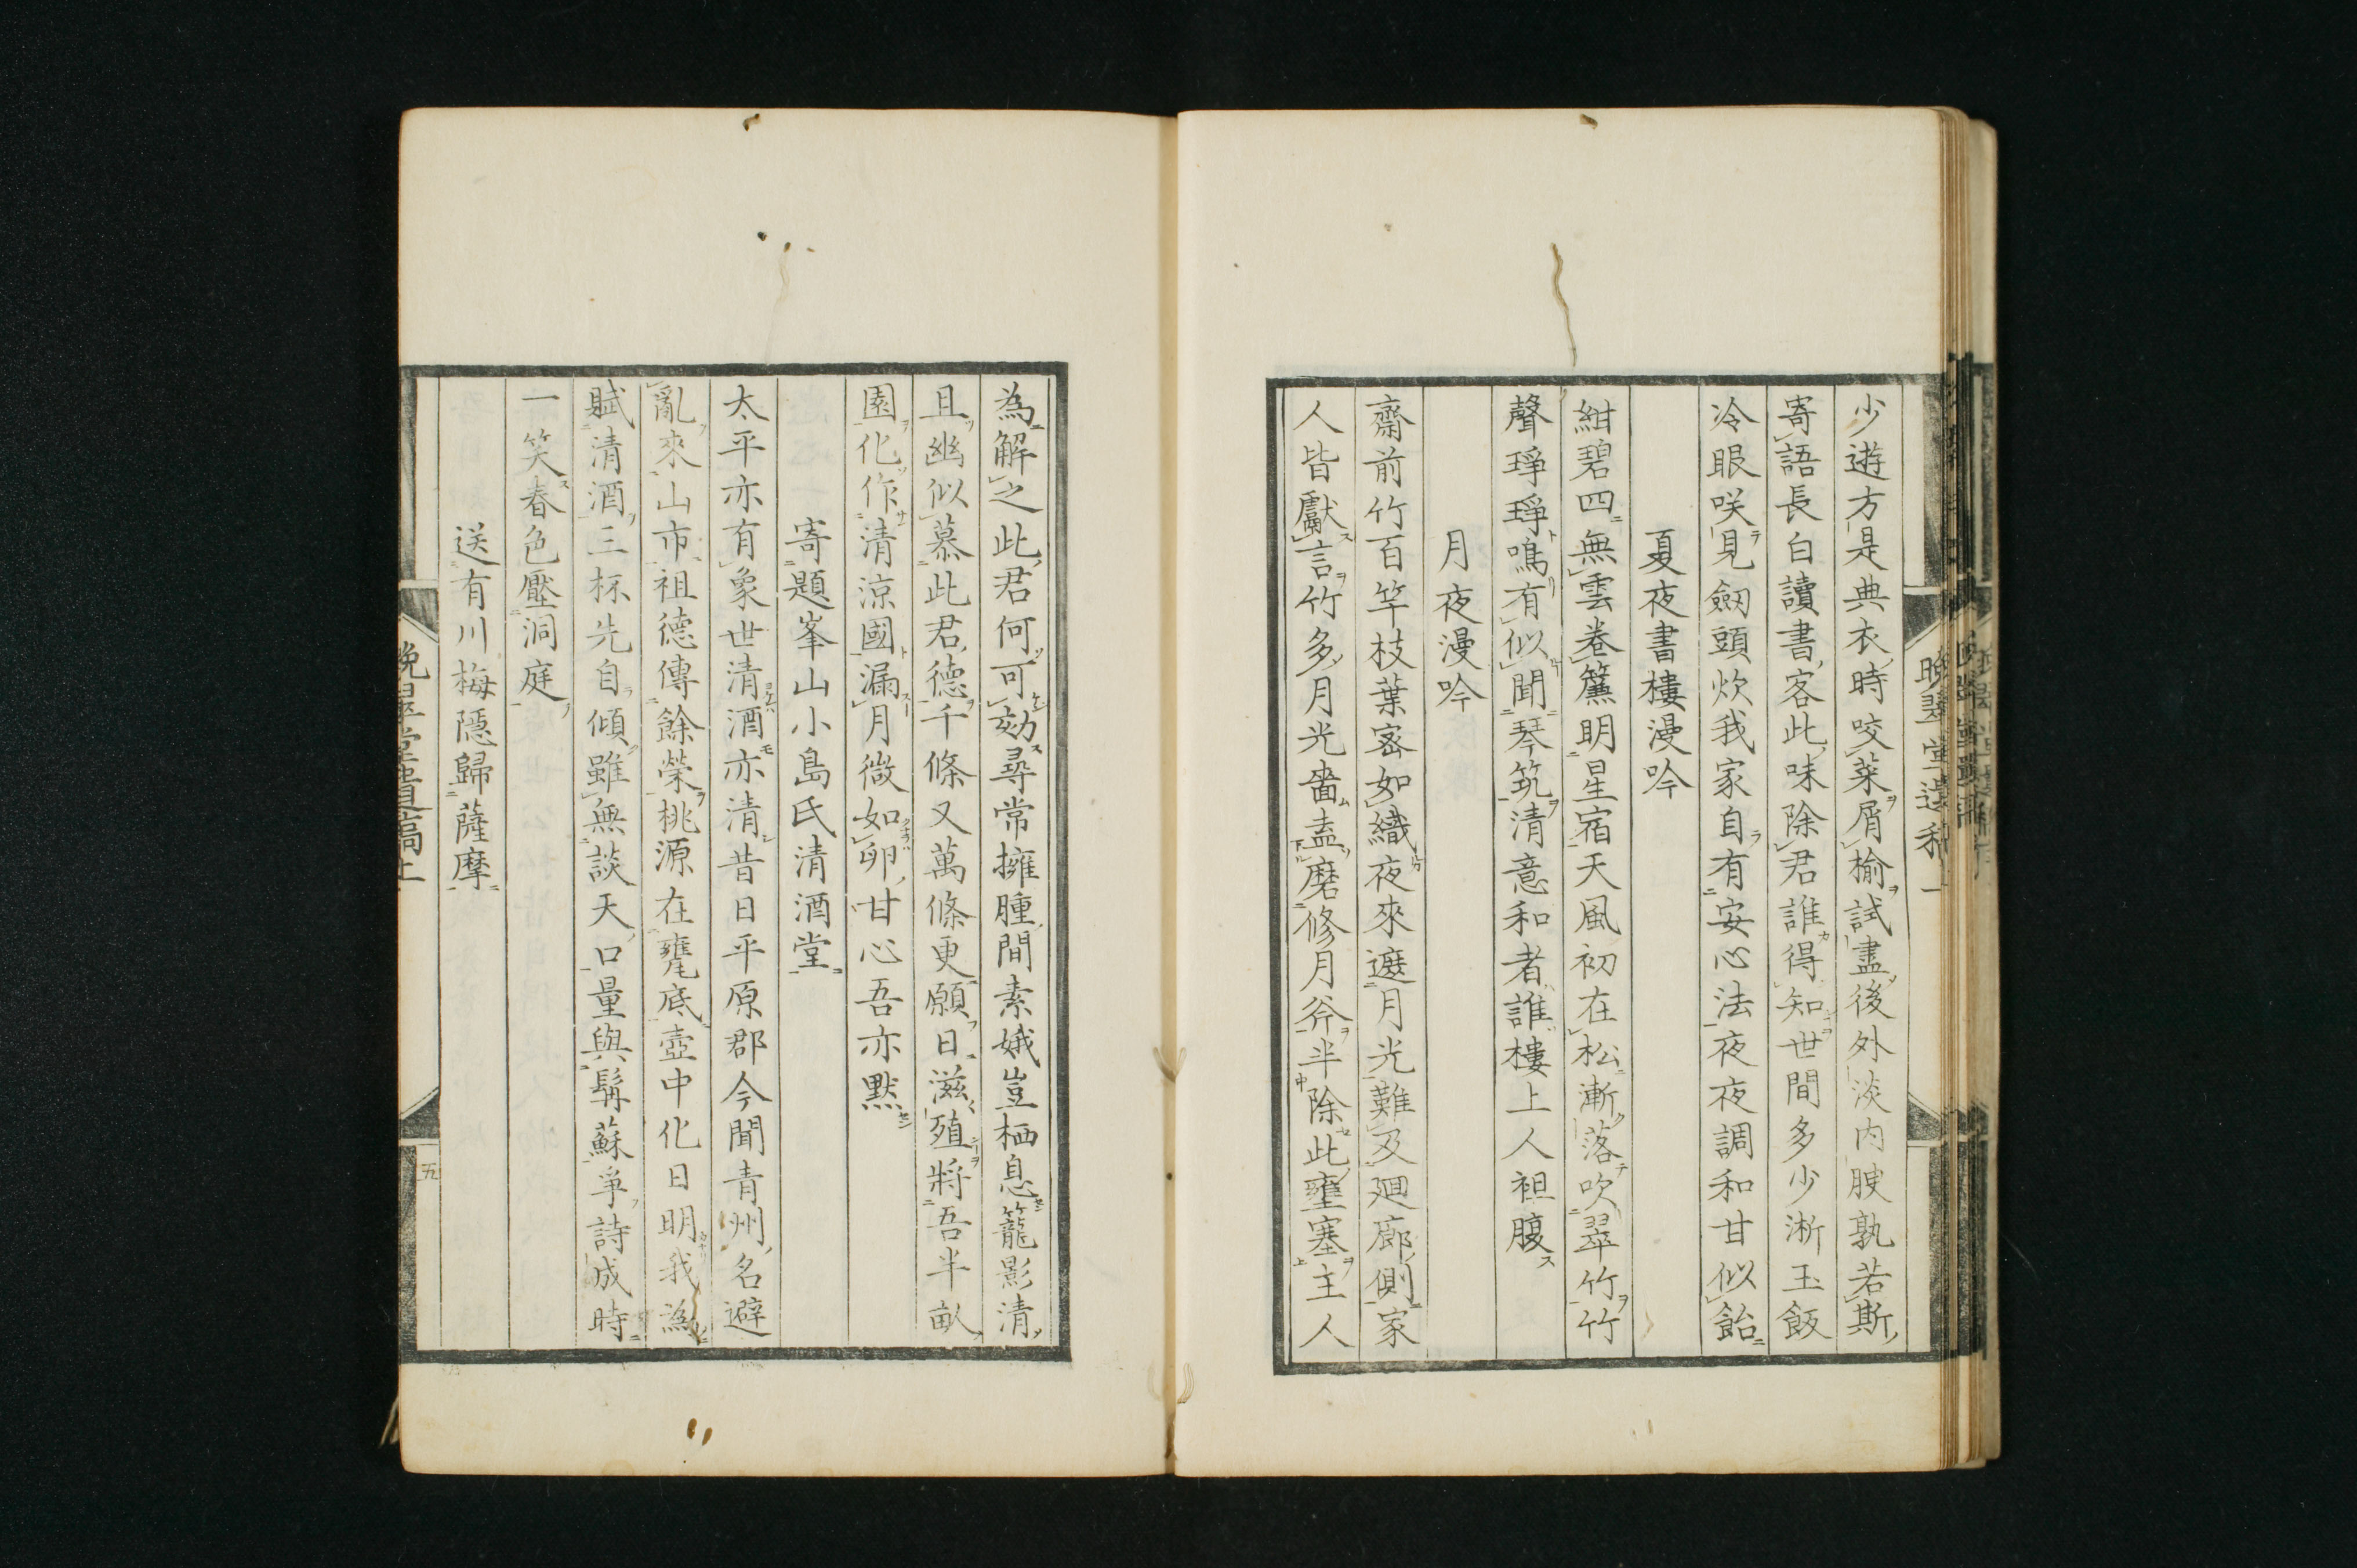 少遊方是典衣時咬菜屑揄試盡後外淡内腴孰若斯
寄語長白讀書客此味除君誰得知世間多少淅玉飯
冷眼咲見劒頭炊我家自有安心法夜夜調和甘似飴
夏夜書樓漫吟
紺碧四無雲卷簾明星宿天風初在松漸落吹翠竹竹
聲琤琤鳴有似聞琴筑清意和者誰樓上人袒腹
月夜漫吟
齋前竹百竿枝葉密如織夜來遮月光難及廻廊側家
人皆獻言竹多月光嗇盍磨修月斧半除此壅塞主人
為解之此君何可劾尋常擁腫間素娥豈栖息籠影清
且幽似慕此君德千條又萬條更願日滋殖將吾半畝
園化作清涼國漏月微如卵甘心吾亦默
寄題峯山小島氏清酒堂
太平亦有象世清酒亦清昔日平原郡今聞青州名避
亂來山市祖德傳餘榮桃源在甕底壺中化日明我為
賦清酒三杯先自傾雖無談天口量與髯蘇爭詩成時
一笑春色壓洞庭
送有川梅隱歸薩摩
晩翠堂遺稿上
五